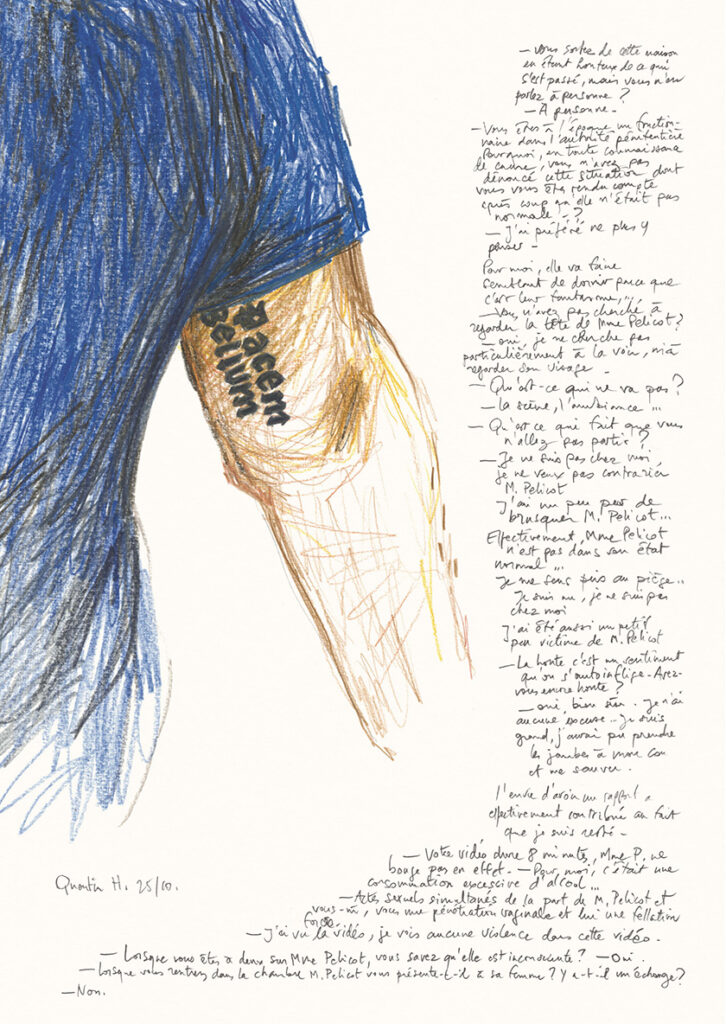 Pacem
Bellum
— Vous sortez de cette maison
en étant honteux de ce qui
s'est passé, mais vous n'en
parlez à personne ?
— A personne -
— Vous êtes à l'époque un fonction-
naire dans l'autorité pénitentiaire
Pourquoi, en toute connaissance
de cause, vous n'avez pas
dénoncé cette situation dont
vous vous êtes rendu compte
après coup qu'elle n'était pas
normale ?
— J'ai préféré ne plus y
penser -
Pour moi, elle va faire
semblant de dormir parce que
c'est leur fantasme, ...
— Vous n'avez pas cherché à
regarder la tête de Mme Pelicot ?
— oui, je ne cherche pas
particulièrement à la voir, ni à
regarder son visage -
— Qu'est-ce qui ne va pas ?
— la scène, l'ambiance ...
— Qu'est ce qui fait que vous
n'allez pas partir ?
— Je ne suis pas chez moi
je ne veux pas contrarier
M. Pelicot
J'ai un peu peur de
brusquer M. Pelicot...
Effectivement, Mme Pelicot
n'est pas dans son état
normal ...
Je me sens pris au piège..
Je suis nu, je ne suis pas
chez moi
J'ai été aussi un petit
peu victime de M. Pelicot
— La honte c'est un sentiment
qu'on s'autoinflige - Avez-
vous encore honte ?
— oui, bien sûr . Je n'ai
aucune excuse.. Je suis
grand, j'aurai pu prendre
les jambes à mon cou
et me sauver .
l'envie d'avoir un rapport a
effectivement contribué au fait
que je suis resté -
— Votre vidéo dure 8 minutes, Mme P. ne
bouge pas en effet. — Pour moi, c'était une
consommation excessive d'alcool ...
— Actes sexuels simultanés de la part de M. Pelicot et
vous-m, vous une pénétration vaginale et lui une fellation
forcée
— J'ai vu la vidéo, je vois aucune violence dans cette vidéo -
— Lorsque vous êtes à deux sur Mme Pelicot, vous savez qu'elle est inconsciente ? — Oui .
— Lorsque vous rentrez dans la chambre M. Pelicot vous présente-t-il à sa femme ? Y a-t-il un échange ?
— Non.
Quentin H. 25/10.